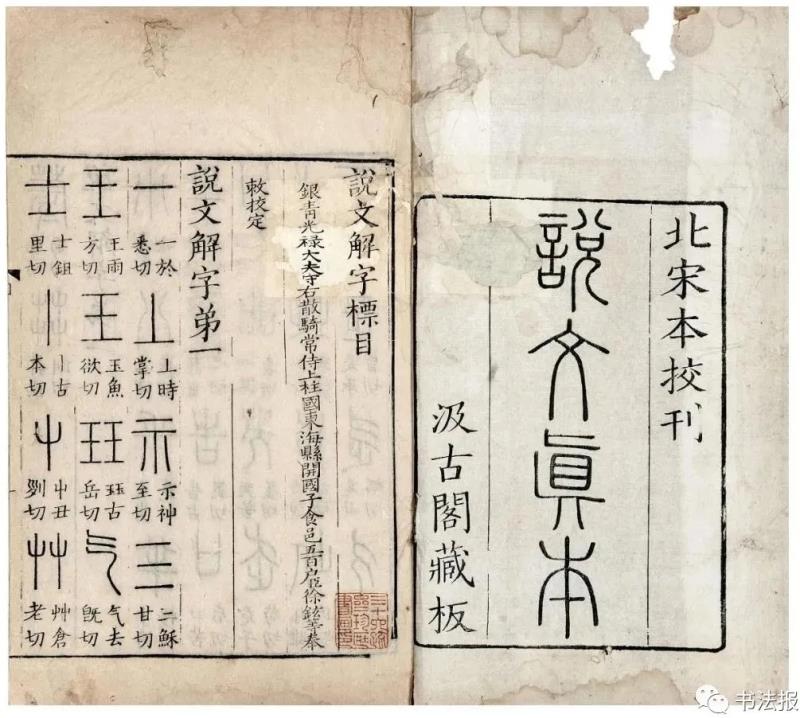 北宋本挍刊
說文眞本
汲古閣藏板
說文解字標目
銀青光禄大夫守右散騎常侍上柱國東海縣開國子食邑五百户臣徐鉉等奉
敕挍定
說文解字弟一
一 一於悉切
丄 上時掌切
示 示神至切
三 三穌甘切
王 王雨方切
玉 玉魚欲切
玨 珏古岳切
气 气去旣切
士 士鉏里切
丨 丨古本切
屮 屮丑列切
艸 艸倉老切
书法报